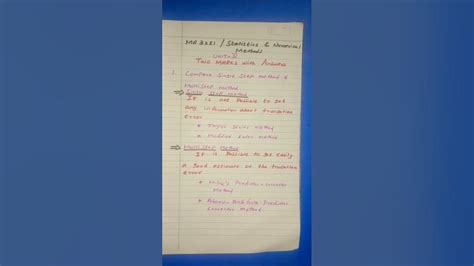 MA 3251 / Statistics & Numerical
Methods
UNIT-
Two Marks with Answers
1. Compare Single Step method &
Multistep method
Single Step method
It is not Possible to get
any information about truncation
error
* Taylor Series method
* Modified Euler method
Multistep method
It is Possible to get easily
a Good estimate of the truncation
error
* Milne's Predictor - corrector
method
* Adams Bashforth Predictor
corrector method